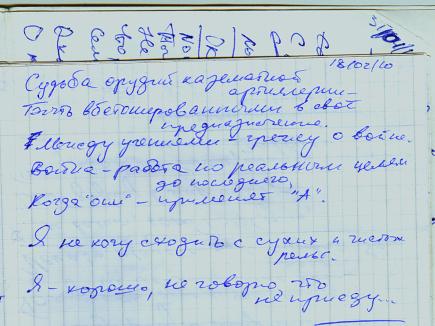 18/02/10
Судьба орудий казематной
артиллерии –
Быть вбетонированными в своё
предназначение.
Между учениями – грежу о войне.
Война – работа по реальным целям
до последнего,
Когда "они" – применят "А".
Я не хочу сходить с сухих и чистых
рельс.
Я – хорошо, не говорю, что
не приеду...